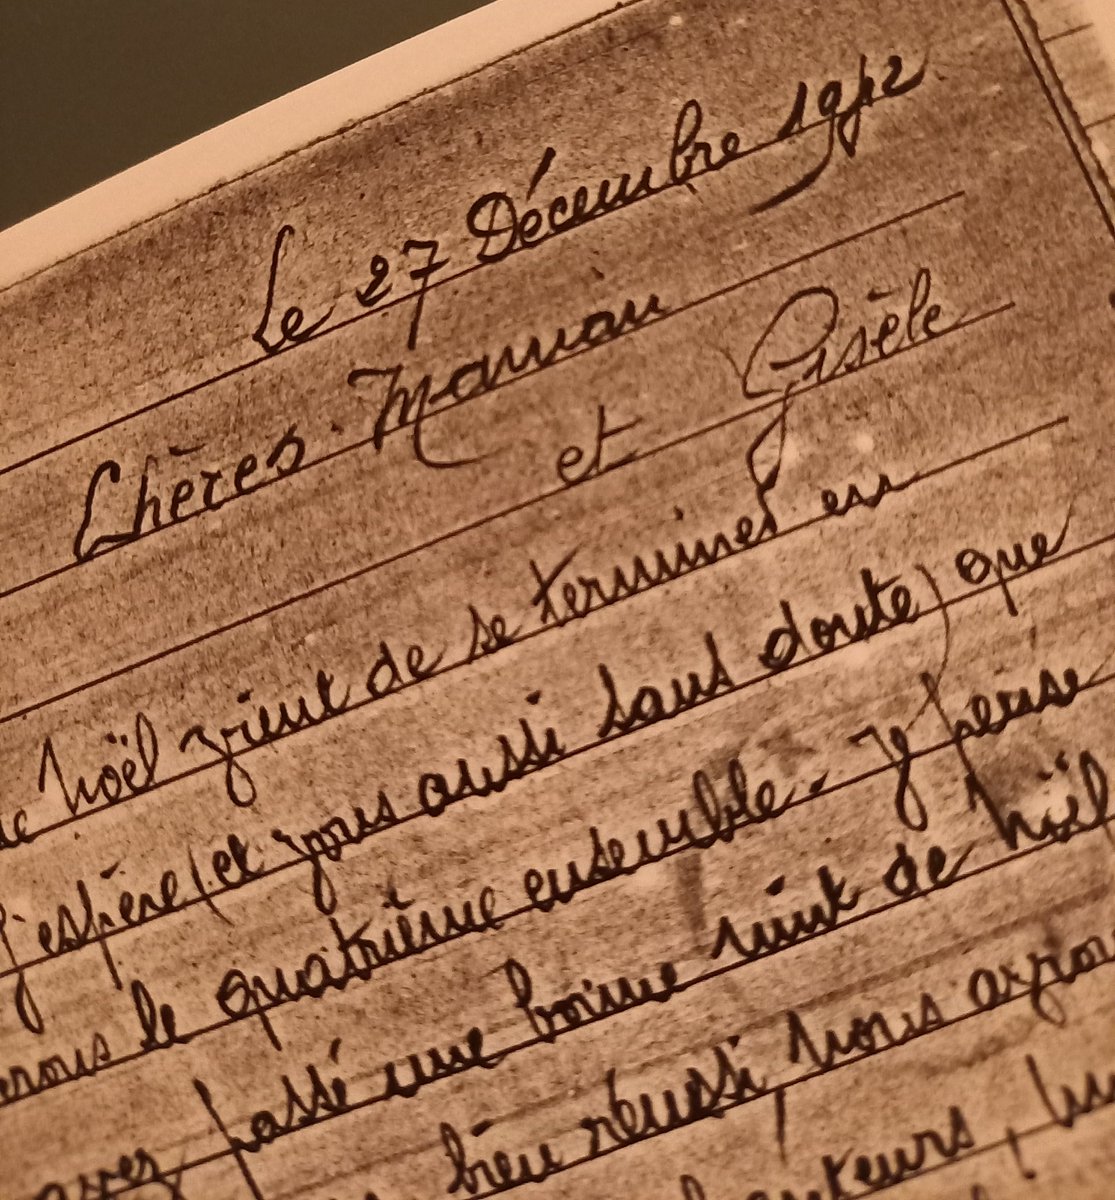 Le 27 Décembre 1942
Chères Maman
et Gisèle
Noël vient de se terminer en
j'espère (et vous aussi sans doute) que
le quatrième ensemble. Je pense
passé une bonne nuit de Noël
bien réussi, nous